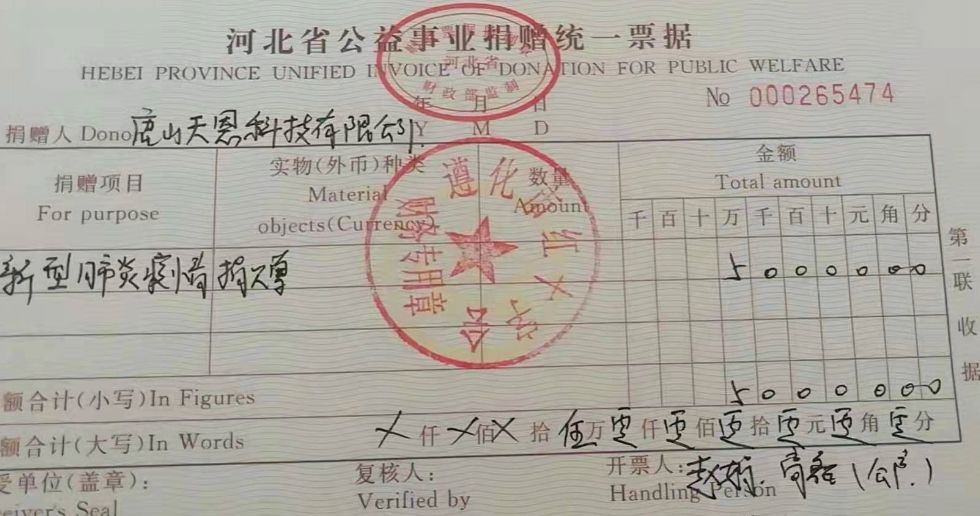 河北省公益事业捐赠统一票据
HEBEI PROVINCE UNIFIED INVOICE OF DONATION FOR PUBLIC WELFARE
河北省
财政部监制
年 月 日
№ 000265474
捐赠人 Dono 唐山天恩科技有限公司
Y M D
捐赠项目
For purpose
实物(外币)种类
Material
objects(Currency)
数量
Amount
金额
Total amount
千 百 十 万 千 百 十 元 角 分
遵化 红十字会
财务专用章
新型肺炎疫情捐赠
5 0 0 0 0 0 0
第一联 收据
额合计(小写)In Figures
5 0 0 0 0 0 0
额合计(大写)In Words
X 仟 X 佰 X 拾 伍 万 零 仟 零 佰 零 拾 零 元 零 角 零 分
受单位(盖章):
ceiver's Seal
复核人:
Verified by
开票人:
Handling Person